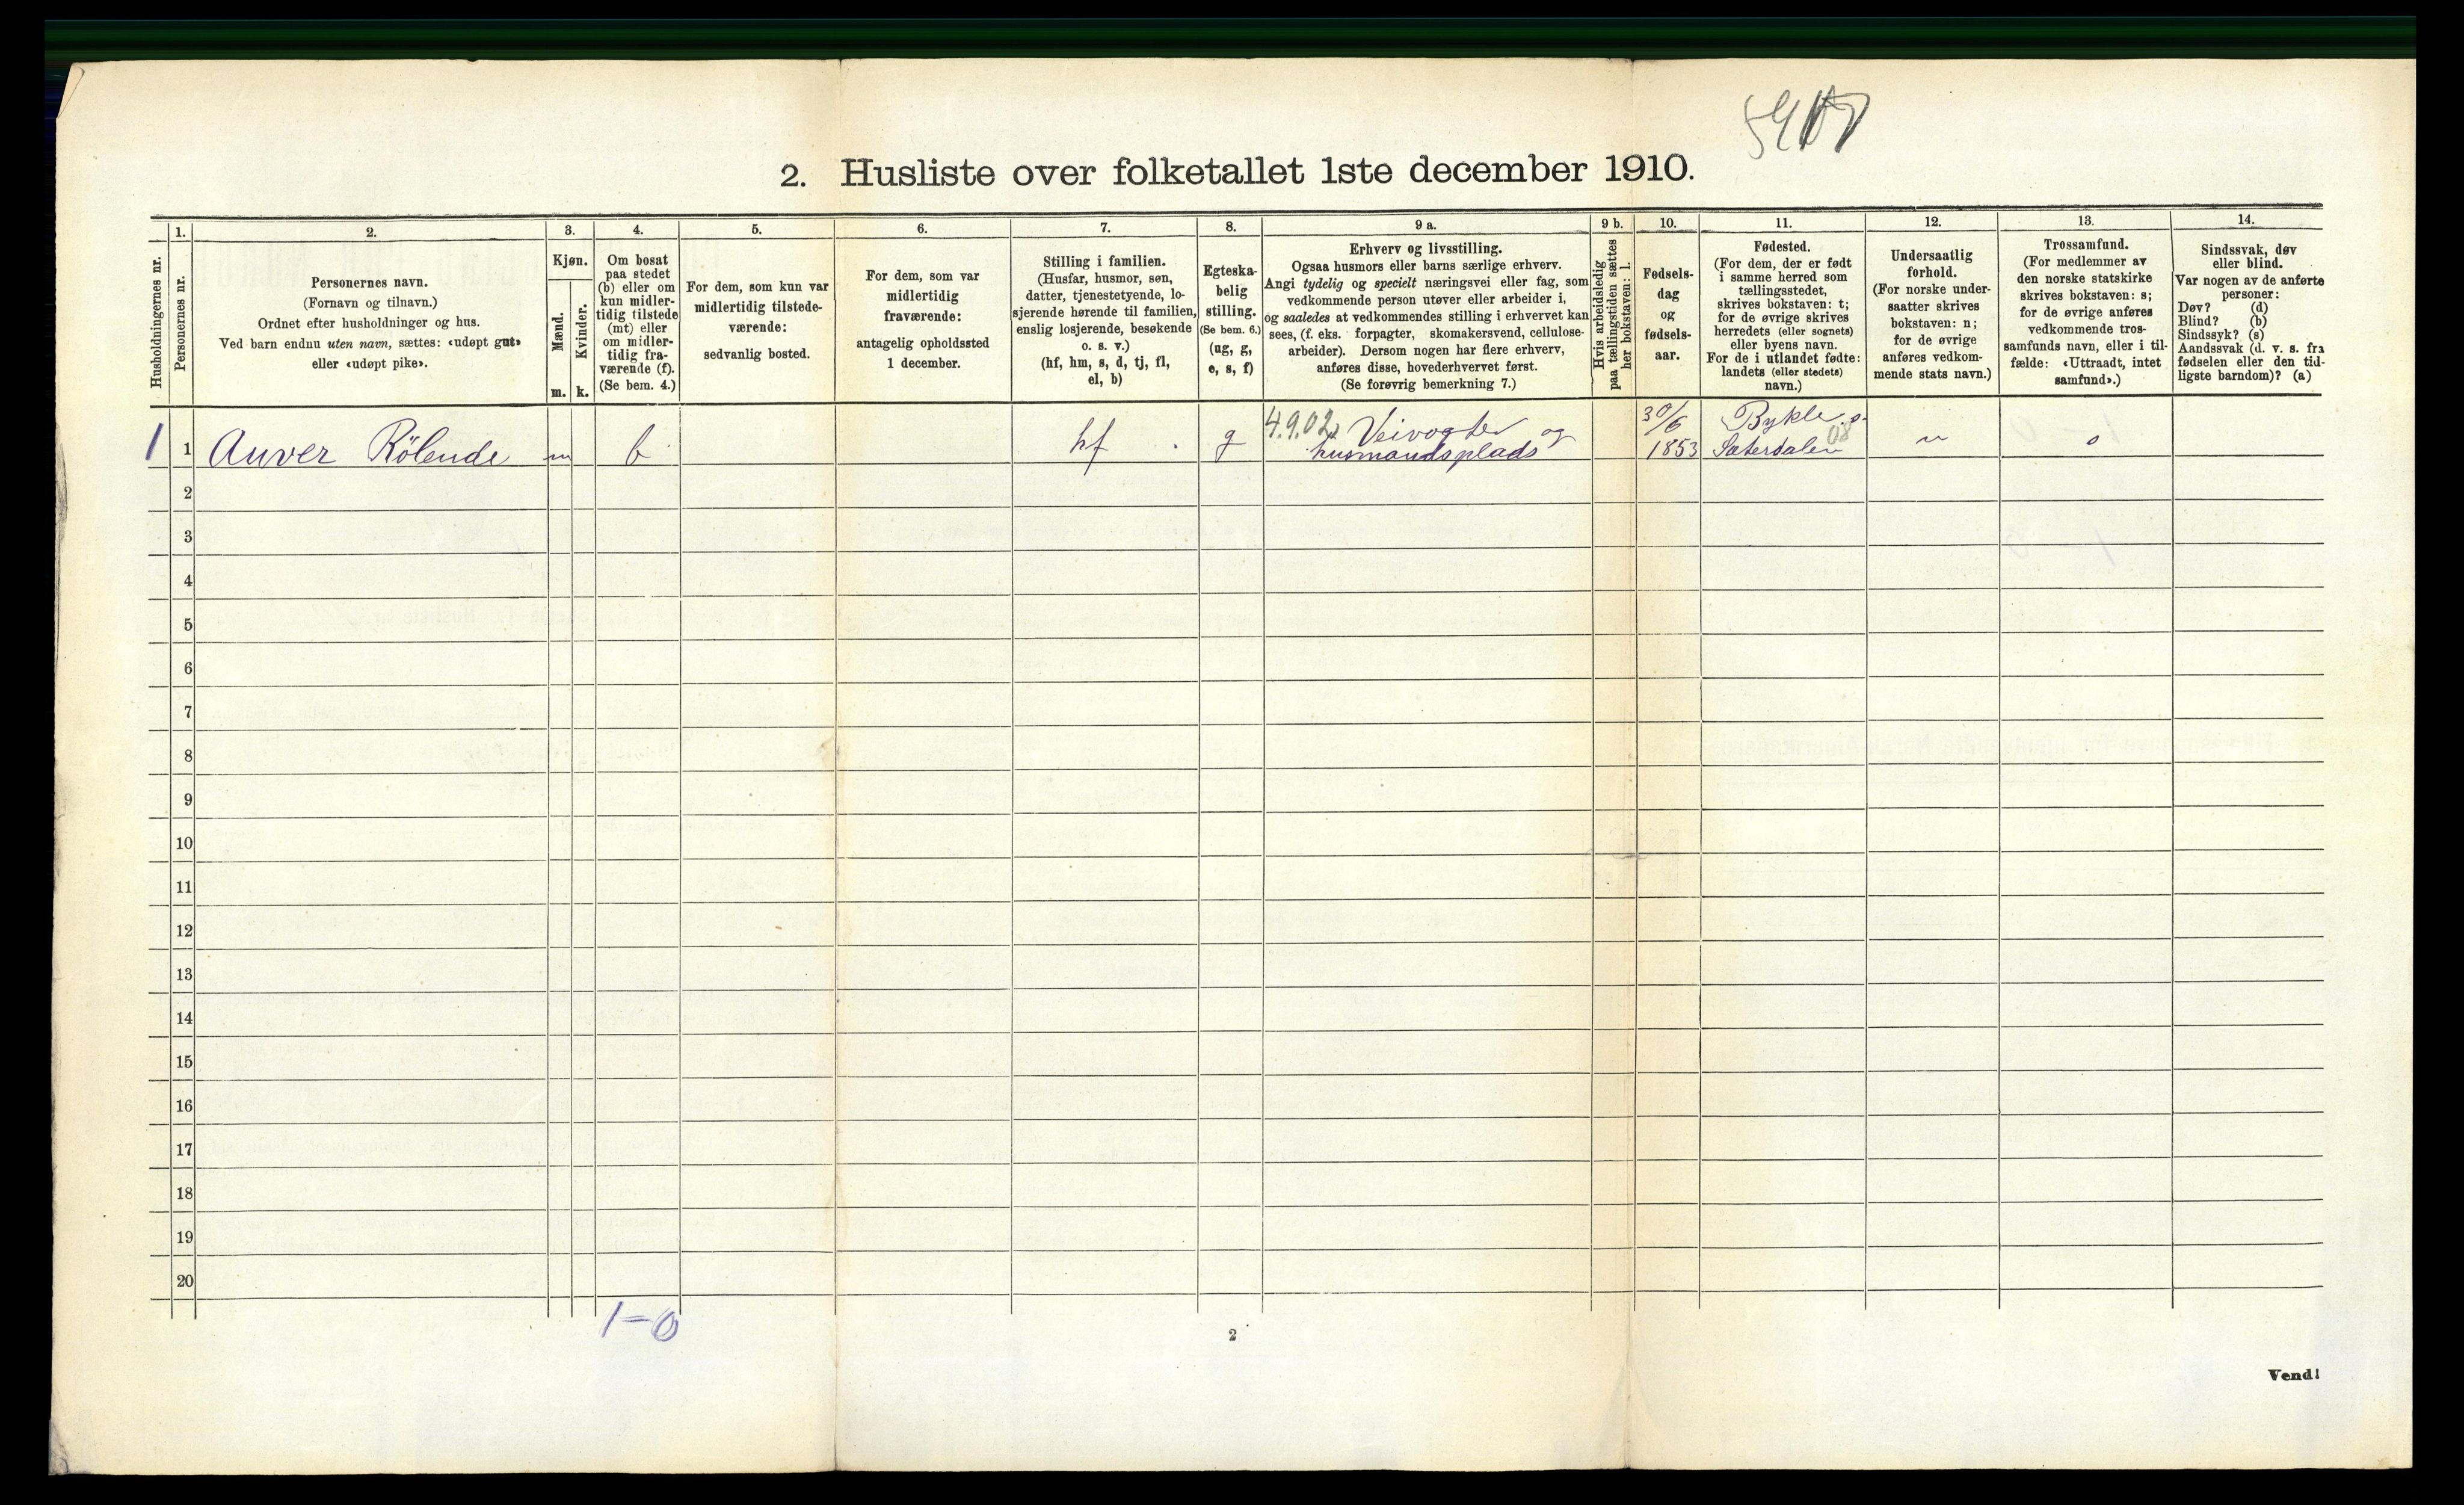 2. Husliste over folketallet 1ste december 1910.
Husholdningernes nr.
1.
Personernes nr.
2.
Personernes navn.
(Fornavn og tilnavn.)
Ordnet efter husholdninger og hus.
Ved barn endnu uten navn, sættes: «udøpt gut»
eller «udøpt pike».
3.
Kjøn.
Mænd.
Kvinder.
m. k.
4.
Om bosat
paa stedet
(b) eller om
kun midler-
tidig tilstede
(mt) eller
om midler-
tidig fra-
værende (f).
(Se bem. 4.)
5.
For dem, som kun var
midlertidig tilstede-
værende:
sedvanlig bosted.
6.
For dem, som var
midlertidig
fraværende:
antagelig opholdssted
1 december.
7.
Stilling i familien.
(Husfar, husmor, søn,
datter, tjenestetyende, lo-
sjerende hørende til familien,
enslig losjerende, besøkende
o. s. v.)
(hf, hm, s, d, tj, fl,
el, b)
8.
Egteska-
belig
stilling.
(Se bem. 6.)
(ug, g,
e, s, f)
9 a.
Erhverv og livsstilling.
Ogsaa husmors eller barns særlige erhverv.
Angi tydelig og specielt næringsvei eller fag, som
vedkommende person utøver eller arbeider i,
og saaledes at vedkommendes stilling i erhvervet kan
sees, (f. eks. forpagter, skomakersvend, cellulose-
arbeider). Dersom nogen har flere erhverv,
anføres disse, hovederhvervet først.
(Se forøvrig bemerkning 7.)
9 b.
Hvis arbeidsledig
paa tællingstiden sættes
her bokstaven: l.
10.
Fødsels-
dag
og
fødsels-
aar.
11.
Fødested.
(For dem, der er født
i samme herred som
tællingsstedet,
skrives bokstaven: t;
for de øvrige skrives
herredets (eller sognets)
eller byens navn.
For de i utlandet fødte:
landets (eller stedets)
navn.)
12.
Undersaatlig
forhold.
(For norske under-
saatter skrives
bokstaven: n;
for de øvrige
anføres vedkom-
mende stats navn.)
13.
Trossamfund.
(For medlemmer av
den norske statskirke
skrives bokstaven: s;
for de øvrige anføres
vedkommende tros-
samfunds navn, eller i til-
fælde: «Uttraadt, intet
samfund».)
14.
Sindssvak, døv
eller blind.
Var nogen av de anførte
personer:
Døv? (d)
Blind? (b)
Sindssyk? (s)
Aandssvak (d. v. s. fra
fødselen eller den tid-
ligste barndom)? (a)
1 1 Auver Rölende m b hf g 4.9.02 Veivogter og
husmandsplads
30/6
1853
Bykle s.
Sæterdalen 08
n s
2
3
4
5
6
7
8
9
10
11
12
13
14
15
16
17
18
19
20
1–0
2
Vend!